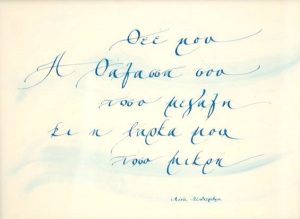 Θεέ μου
Η θάλασσα σου
τοσο μεγαλη
Κι η βαρκα μου
τοσο μικρη